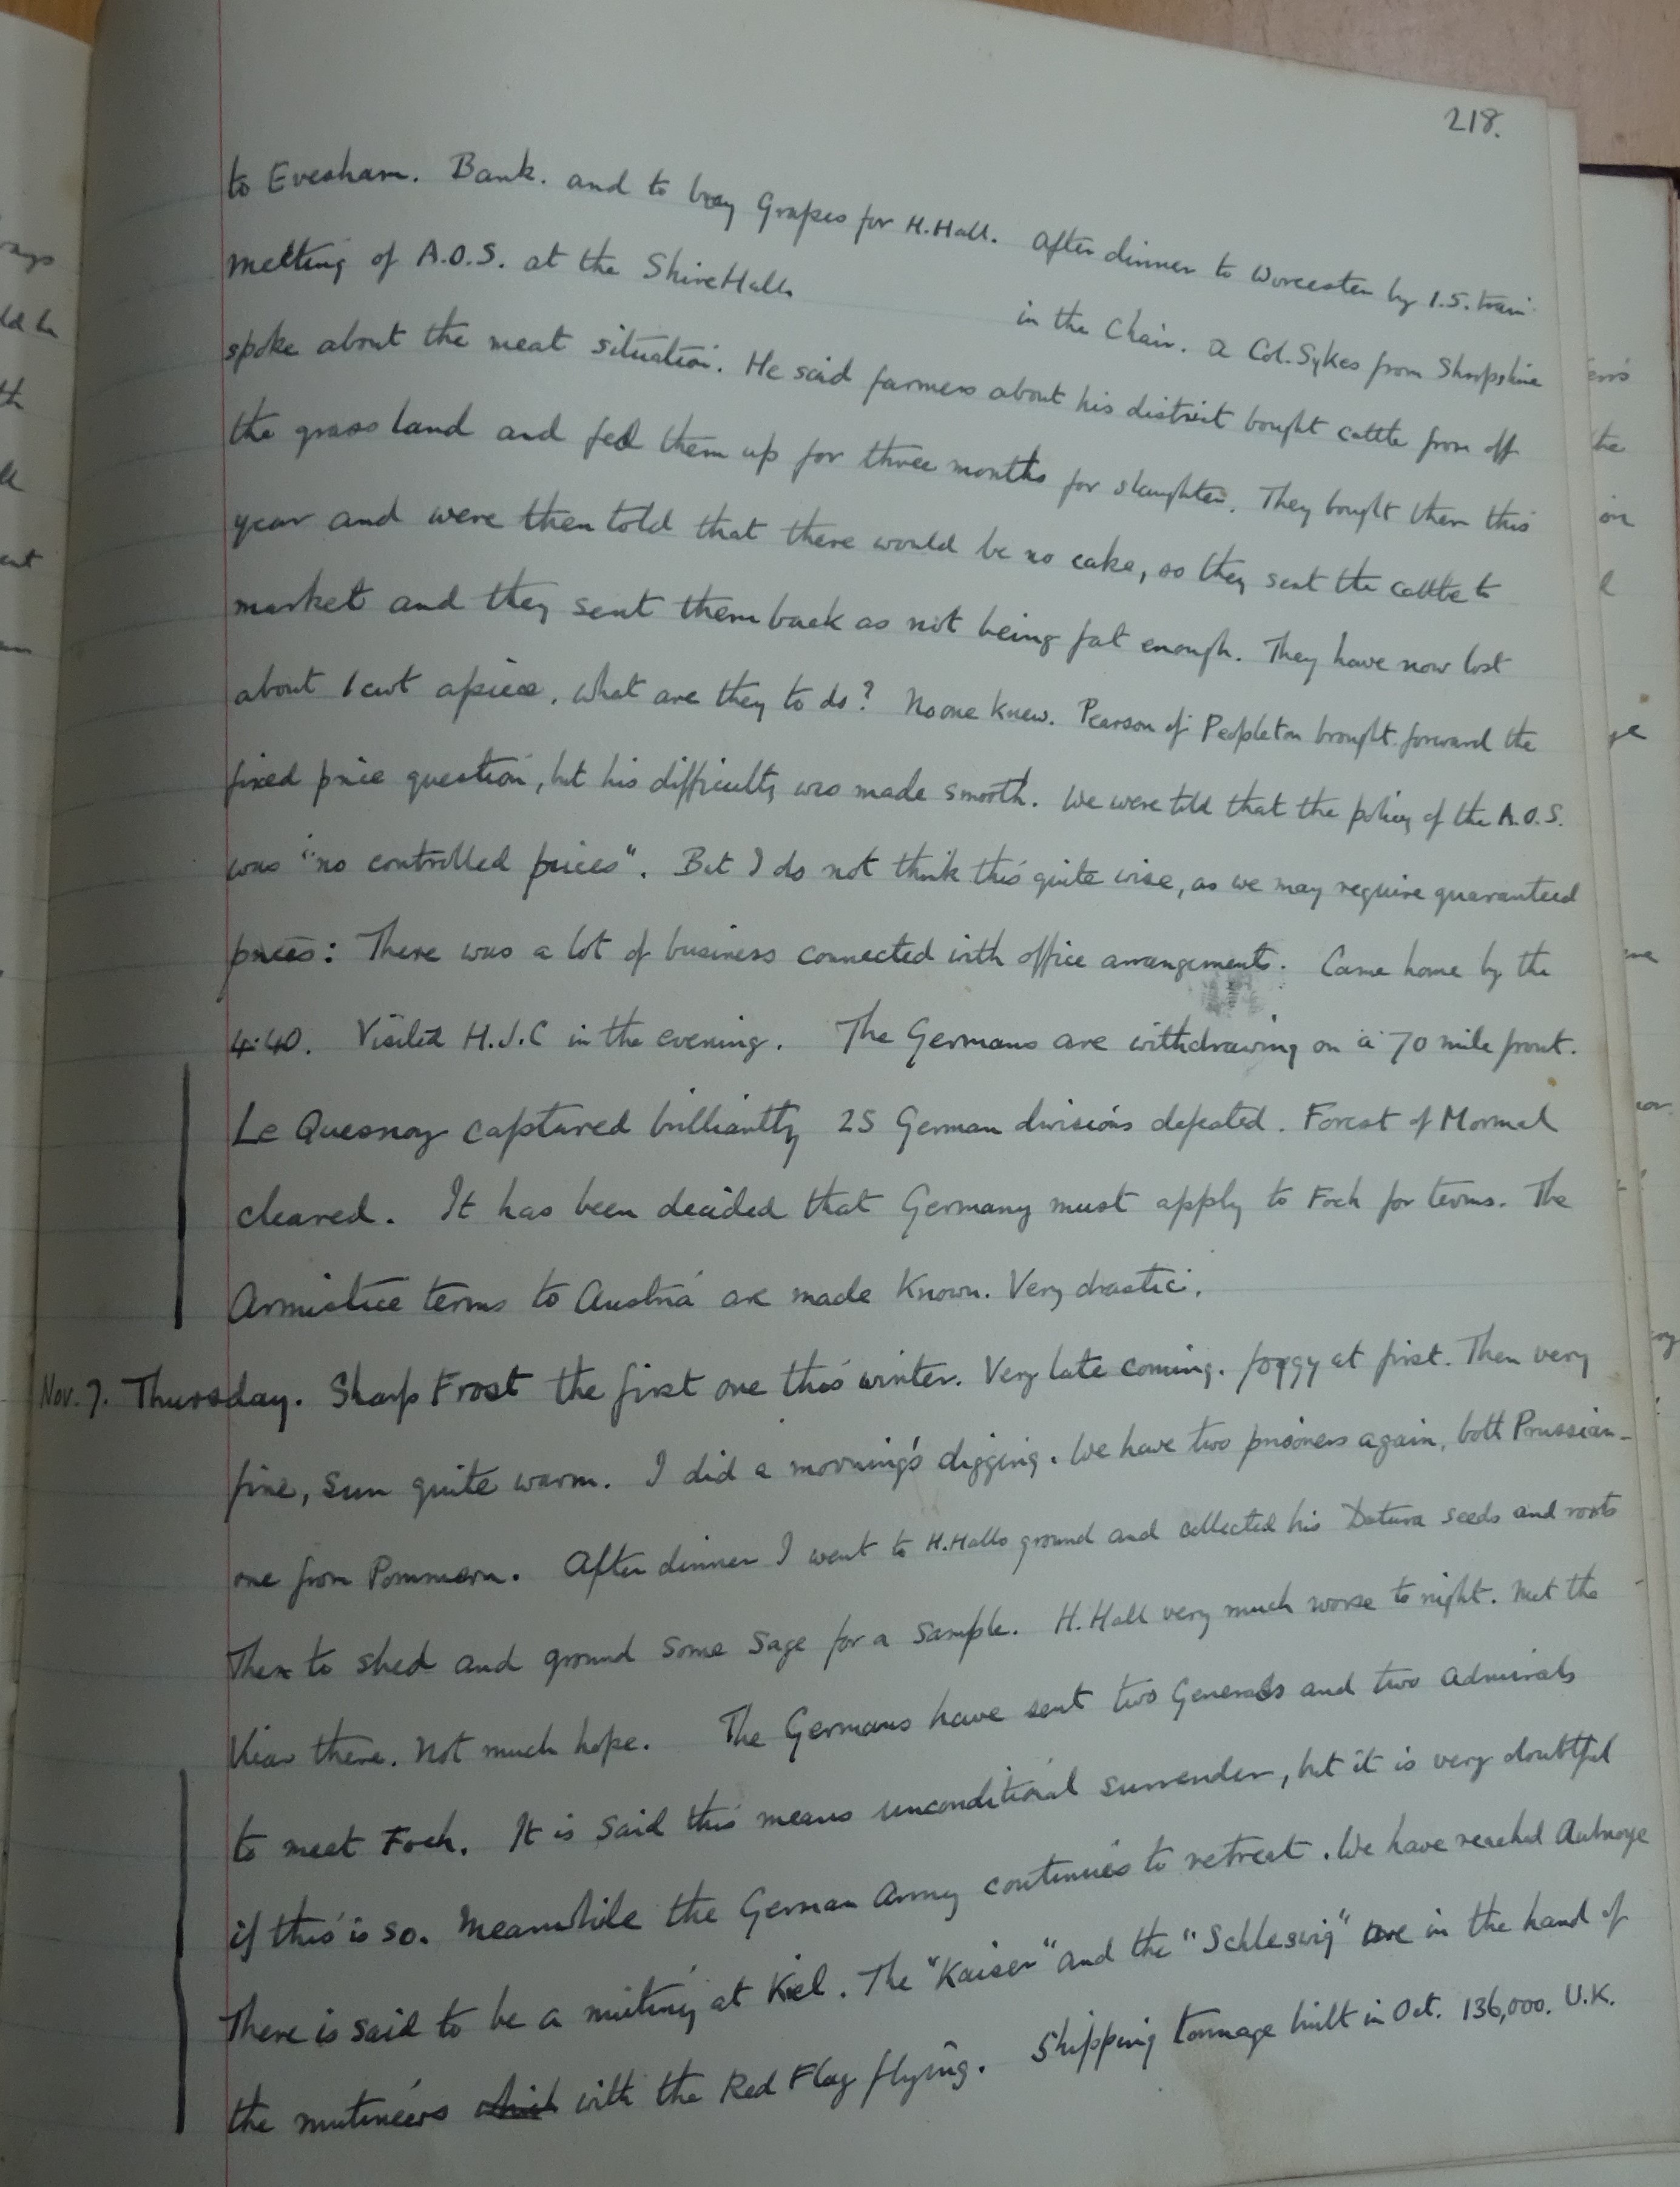 218.
to Evesham. Bank. and to buy Grapes for H.Hall. After dinner to Worcester by 1.5. train
meeting of A.O.S. at the ShireHall in the Chair. A Col. Sykes from Shropshire
spoke about the meat situation. He said farmers about his district bought cattle from off
the grass land and fed them up for three months for slaughter. They bought them this
year and were then told that there would be no cake, so they sent the cattle to
market and they sent them back as not being fat enough. They have now lost
about 1 cwt apiece. What are they to do? No one knew. Pearson of Peopleton brought forward the
fixed price question, but his difficulty was made smooth. We were told that the policy of the A.O.S.
was "no controlled prices". But I do not think this quite wise, as we may require guaranteed
prices: There was a lot of business connected with office arrangements. Came home by the
4.40. Visited H.J.C in the evening. The Germans are withdrawing on a 70 mile front.
Le Quesnoy captured brilliantly 25 German divisions defeated. Forest of Mormal
cleared. It has been decided that Germany must apply to Foch for terms. The
Armistice terms to Austria are made known. Very drastic.
Nov. 7. Thursday. Sharp Frost the first one this winter. Very late coming. foggy at first. Then very
fine, sun quite warm. I did a morning's digging. We have two prisoners again, both Prussian-
one from Pommern. After dinner I went to H.Halls ground and collected his Datura seeds and roots
Then to shed and ground some sage for a sample. H. Hall very much worse to night. Met the
Vicar there. Not much hope. The Germans have sent two Generals and two Admirals
to meet Foch. It is said this means unconditional surrender, but it is very doubtful
if this is so. Meanwhile the German Army continues to retreat. We have reached Aulnoye
There is said to be a mutiny at Kiel. The "Kaiser" and the "Schleswig" are in the hand of
the mutineers with the Red Flag flying. Shipping tonnage built in Oct. 136,000. U.K.